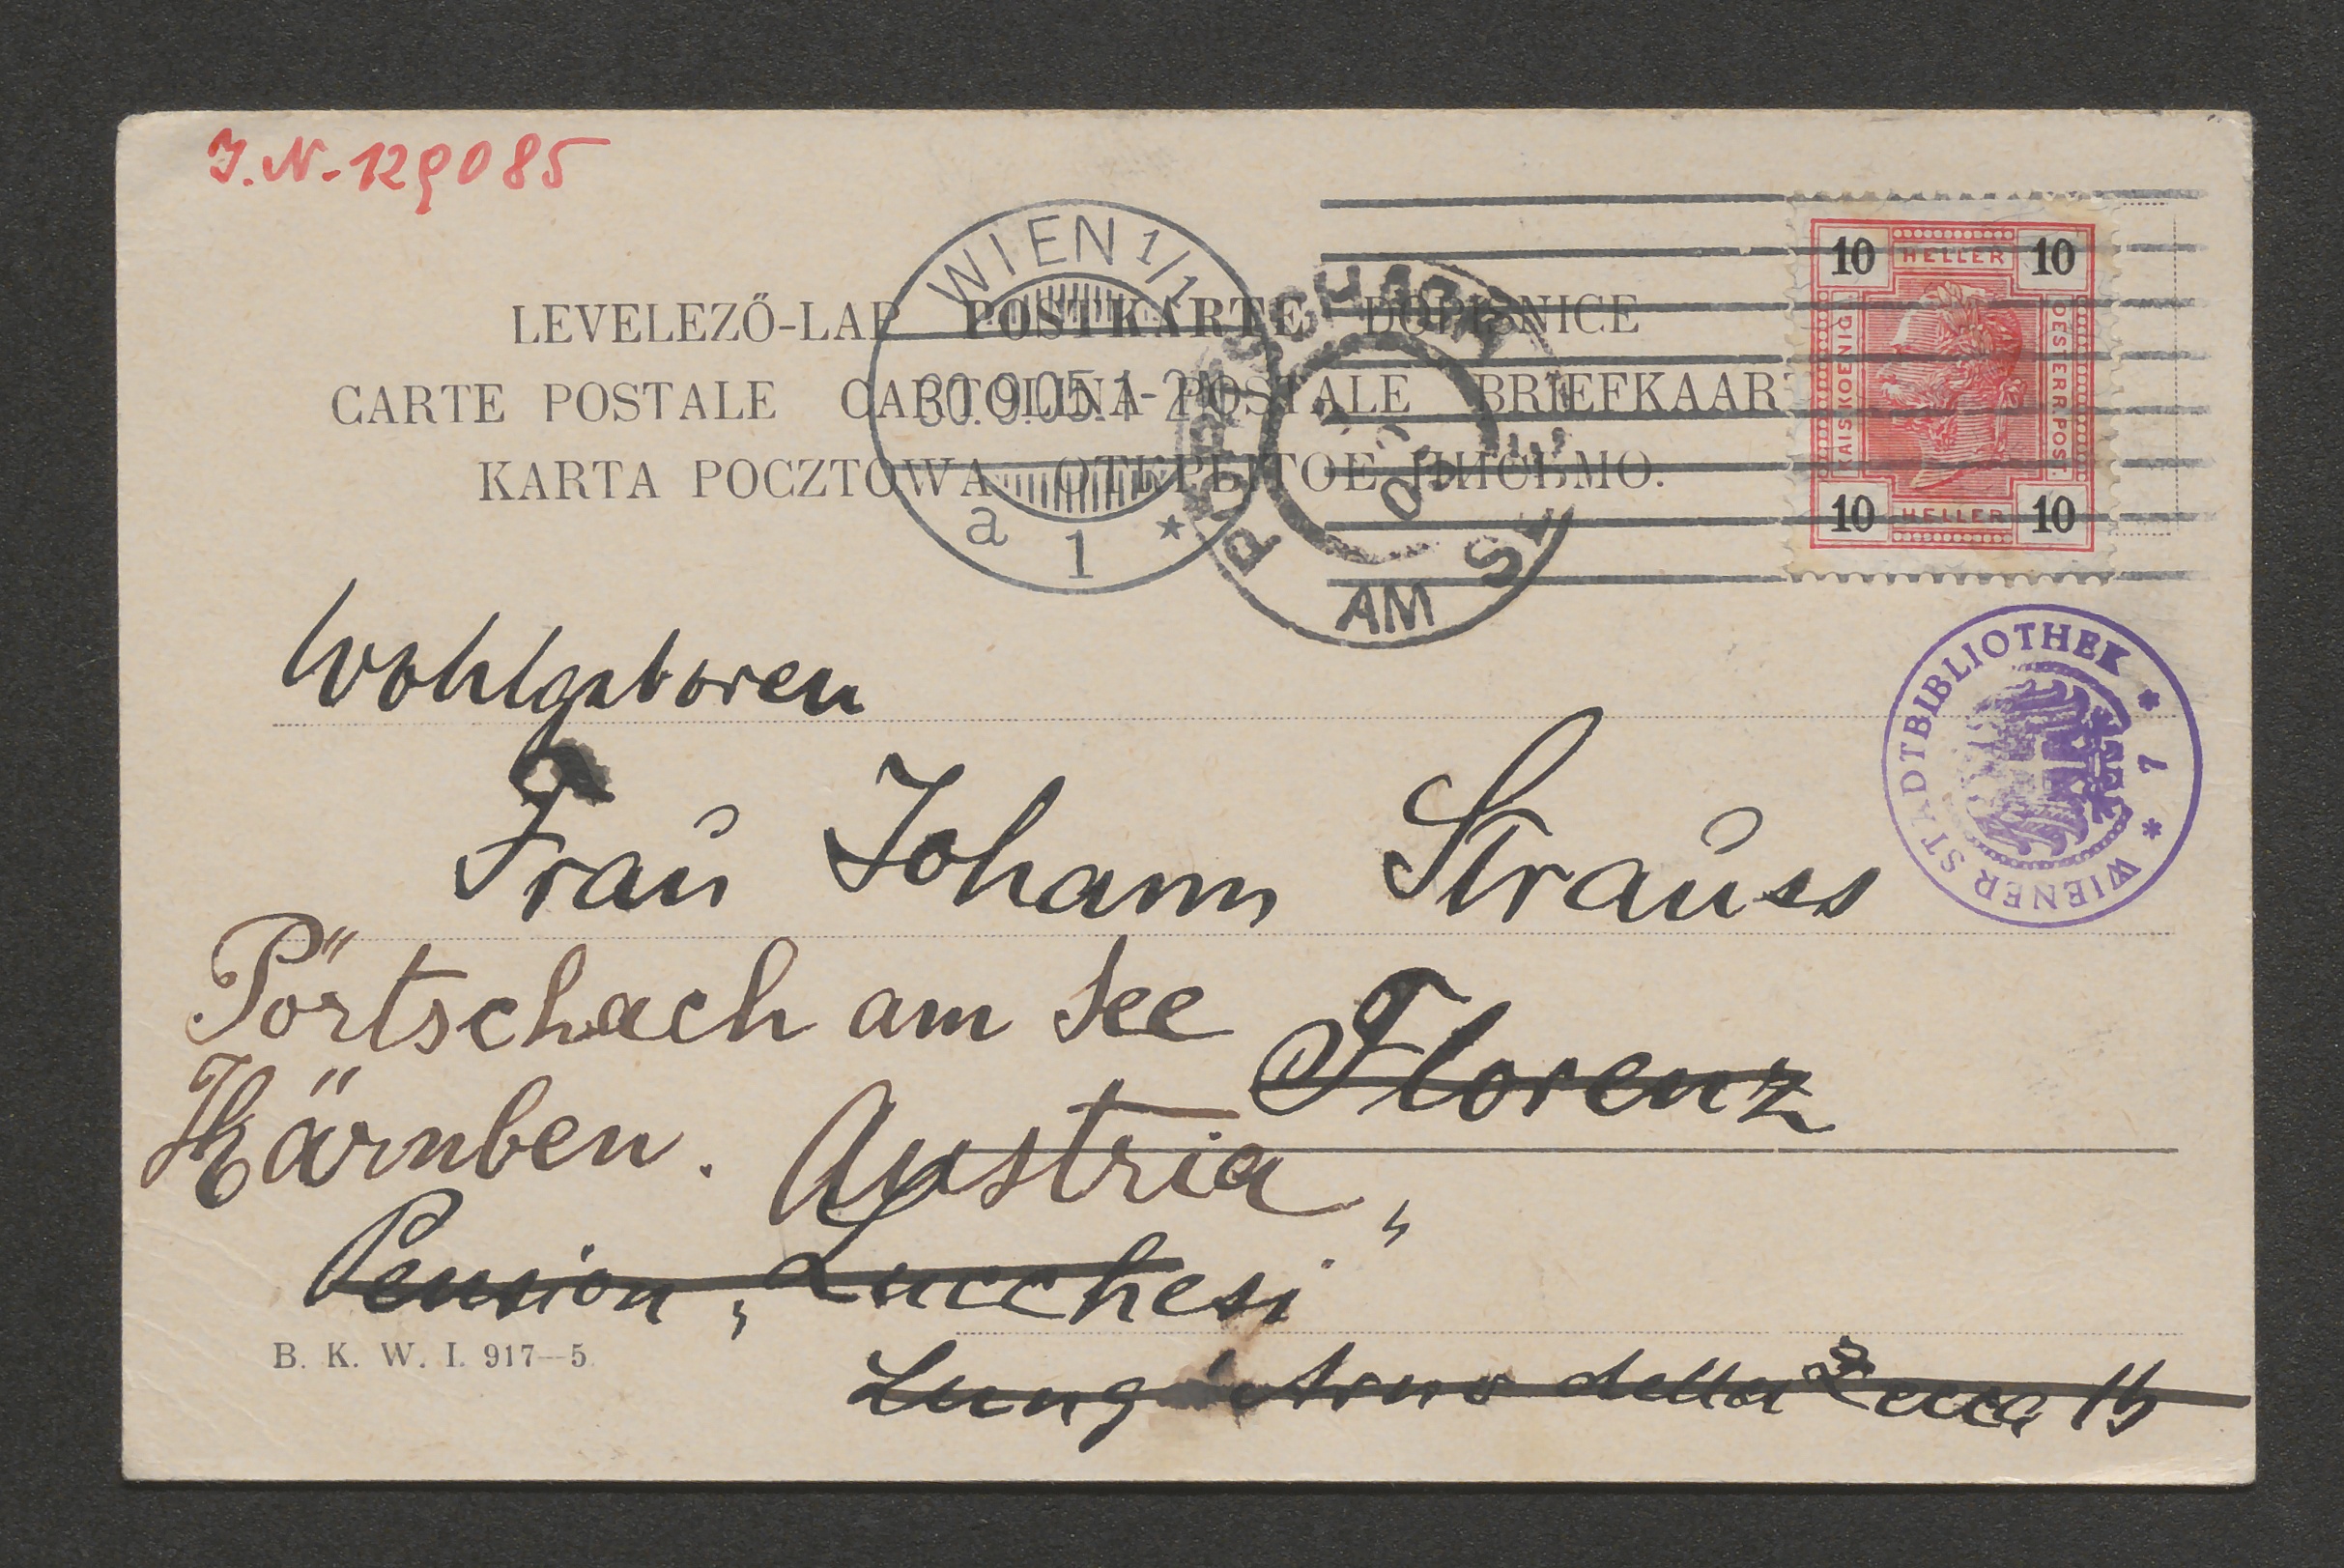 J.N. 129085
WIEN 1/1
30.9.05.1-2
a 1 *
PÖRTSCHACH
AM SEE
10 HELLER 10
KAIS. KOENIG.
OESTERR. POST.
10 HELLER 10
LEVELEZŐ-LAP POSTKARTE DOPISNICE
CARTE POSTALE CARTOLINA-POSTALE BRIEFKAART
KARTA POCZTOWA ОТКРЫТОЕ ПИСЬМО.
WIENER STADTBIBLIOTHEK * 7 *
Wohlgeboren
Frau Johann Strauss
Pörtschach am See
Florenz
Kärnben. Austria
Pension „Lucchesi"
B. K. W. I. 917—5
Lung Arno della Zecca 15